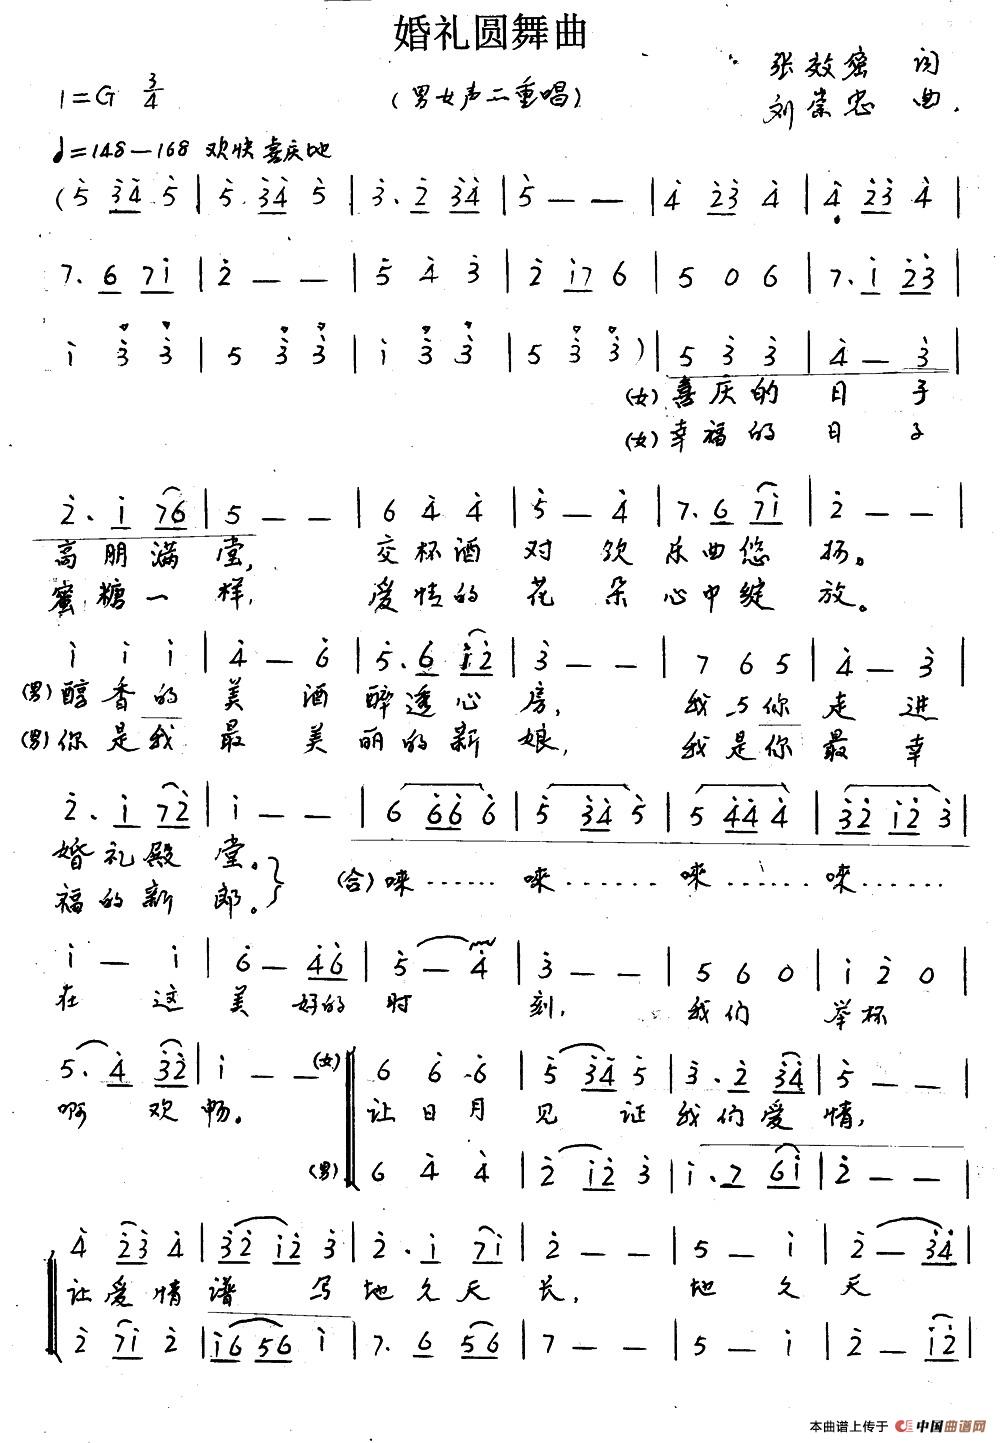 婚礼圆舞曲
1=G 3/4 (男女声二重唱) 张效密 词
刘崇忠 曲.
♩=148—168 欢快喜庆地
(5 34 5 | 5. 34 5 | 3. 2 34 | 5 — — | 4 23 4 | 4 23 4 |
7. 6 71 | 2 — — | 5 4 3 | 2 17 6 | 5 0 6 | 7. 1 23 |
1 3 3 | 5 3 3 | 1 3 3 | 5 3 3) | 5 3 3 | 4 — 3 |
(女) 喜庆的 日 子
(女) 幸福的 日 子
2. 1 76 | 5 — — | 6 4 4 | 5 — 4 | 7. 6 71 | 2 — — |
高朋满堂, 交杯酒对饮乐曲悠扬。
蜜糖一样, 爱情的花朵心中绽放。
1 1 1 | 4 — 6 | 5. 6 12 | 3 — — | 7 6 5 | 4 — 3 |
(男) 醇香的美酒醉透心房, 我与你走进
(男) 你是我最美丽的新娘, 我是你最幸
2. 1 72 | 1 — — | 6 66 6 | 5 34 5 | 5 44 4 | 32 12 3 |
婚礼殿堂。
福的新郎。} (合) 唻…… 唻…… 唻…… 唻……
1 — 1 | 6 — 46 | 5 — 4 | 3 — — | 5 6 0 | 1 2 0 |
在 这 美 好的 时 刻, 我们 举杯
5. 4 32 | 1 — — (女) 6 6 6 | 5 34 5 | 3. 2 34 | 5 — — |
啊 欢 畅。 让日月见证我们爱情,
(男) 6 4 4 | 2 12 3 | 1. 7 61 | 2 — — |
4 23 4 | 32 12 3 | 2. 1 71 | 2 — — | 5 — 1 | 2 — 34 |
让爱情谱写地久天长, 地 久 天
2 71 2 | 16 56 1 | 7. 6 56 | 7 — — | 5 — 1 | 2 — 12 |
本曲谱上传于 中国曲谱网